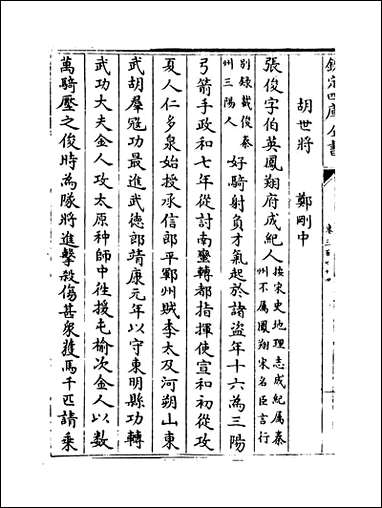 欽定四庫全書
胡世將　鄭剛中
張俊字伯英鳳翔府成紀人
按宋史地理志成紀屬秦
州不属鳳翔宋名臣言行
别録載俊秦
州三陽人
好騎射負才氣起於諸盗年十六為三陽
弓箭手政和七年從討南蠻轉都指揮使宣和初從攻
夏人仁多泉始授承信郎平鄆州賊李太及河朔山東
武胡羣寇功最進武德郎靖康元年以守東明縣功轉
武功大夫金人攻太原种師中往援屯榆次金人以數
萬騎壓之俊時為隊將進擊殺傷甚衆獲馬千匹請乘